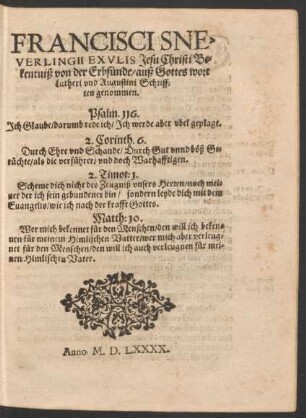 FRANCISCI SNE-
VERLINGII EXVLIS Jesu Christi Be-
kentniß von der Erbsünde/auß Gottes wort
Lutheri vnd Augustini Schriff-
ten genommen.
Psalm. 116.
Ich Glaube/darumb rede ich/Ich werde aber vbel geplagt.
2. Corinth. 6.
Durch Ehre vnd Schande/Durch Gut vnnd böß Ge-
rüchte/als die verführer/vnd doch Warhafftigen.
2. Timot: 1.
Scheme dich nicht des Zeugniß vnsers Herren/noch mei-
ner der ich sein gebundener bin/ sondern leyde dich mit dem
Euangelio/wie ich nach der krafft Gottes.
Matth: 10.
Wer mich bekennet für den Menschen/den will ich beken-
nen für meinem Himlischen Vatter/wer mich aber verleug-
net für den Menschen/den will ich auch verleugnen für mei-
nen Himlischen Vater.
Anno M. D. LXXXX.